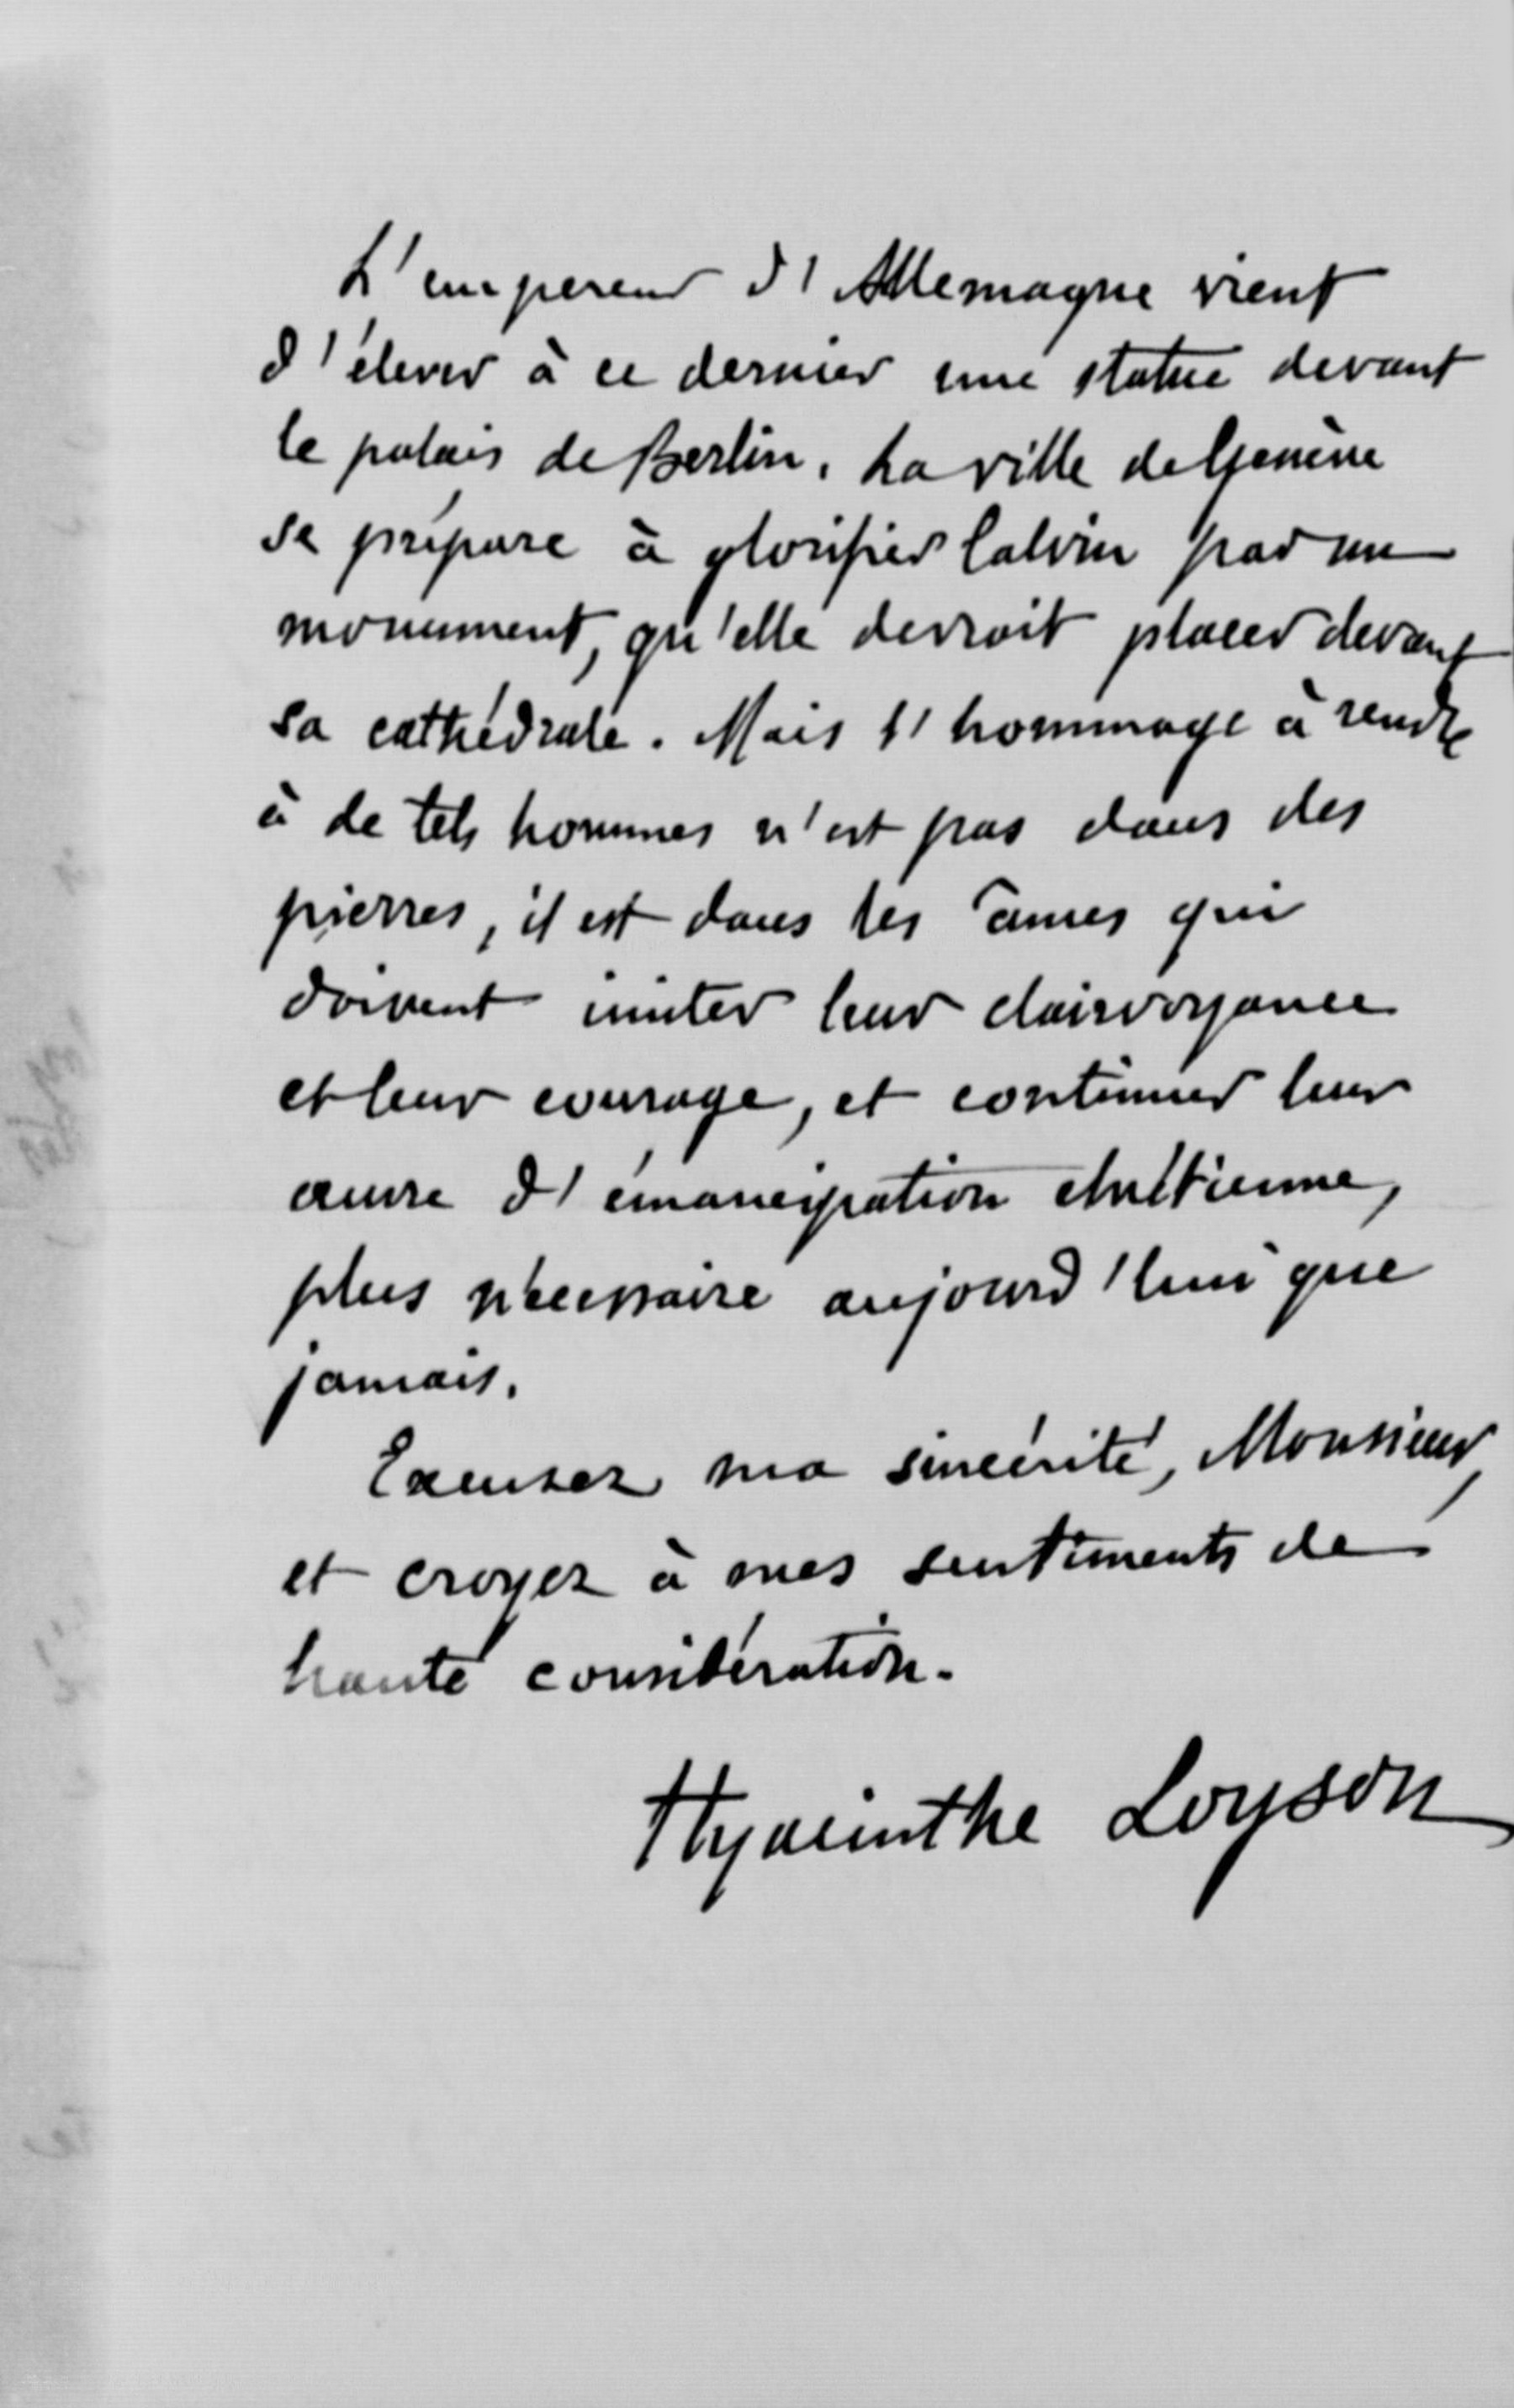 L'empereur d'Allemagne vient
d'élever à ce dernier une statue devant
le palais de Berlin. La ville de Genève
se prépare à glorifier Calvin par un
monument, qu'elle devrait placer devant
sa cathédrale. Mais l'hommage à rendre
à de tels hommes n'est pas dans des
pierres, il est dans les âmes qui
doivent imiter leur clairvoyance
et leur courage, et continuer leur
œuvre d'émancipation chrétienne,
plus nécessaire aujourd'hui que
jamais.
Excusez ma sincérité, Monsieur,
et croyez à mes sentiments de
haute considération.
Hyacinthe Loyson